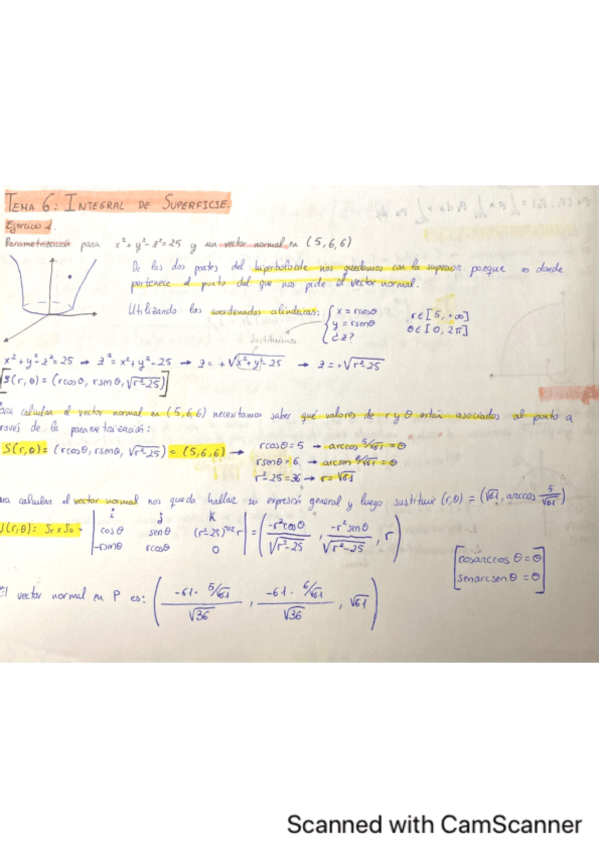 TEMA 6: INTEGRAL DE SUPERFICIE.
Ejercicio 2.
Parametrización para x²+y²-z²=25 y un vector normal en (5,6,6)
De las dos partes del hiperboloide nos quedamos con la superior porque es donde
pertenece el punto del que nos pide el vector normal.
Utilizando las coordenadas cilíndricas: { x = rcosθ r∈[5,+∞]
y = rsenθ θ∈[0,2π]
¿z?
Sustituimos
x²+y²-z²=25 → z²=x²+y²-25 → z=+√x²+y²-25 → z=+√r²-25
[S(r,θ) = (rcosθ, rsenθ, √r²-25)]
ara calcular el vector normal en (5,6,6) necesitamos saber qué valores de r y θ están asociados al punto a
ravés de la parametrización:
S(r,θ) = (rcosθ, rsenθ, √r²-25) = (5,6,6) → rcosθ=5 → arccos 5/√61 = θ
rsenθ=6 → arcsen 6/√61 = θ
r²-25=36 → r=√61
ara calcular el vector normal nos queda hallar su expresión general y luego sustituir (r,θ) = (√61, arccos 5/√61)
(r,θ) = Sr x Sθ = | i j k |
| cosθ senθ (r²-25)^-1/2 r | = (-r²cosθ/√r²-25, -r²senθ/√r²-25, r)
| -rsenθ rcosθ 0 |
[cosarccos θ = θ
senarcsen θ = θ]
El vector normal en P es: (-61· 5/√61 / √36, -61· 6/√61 / √36, √61)
Scanned with CamScanner